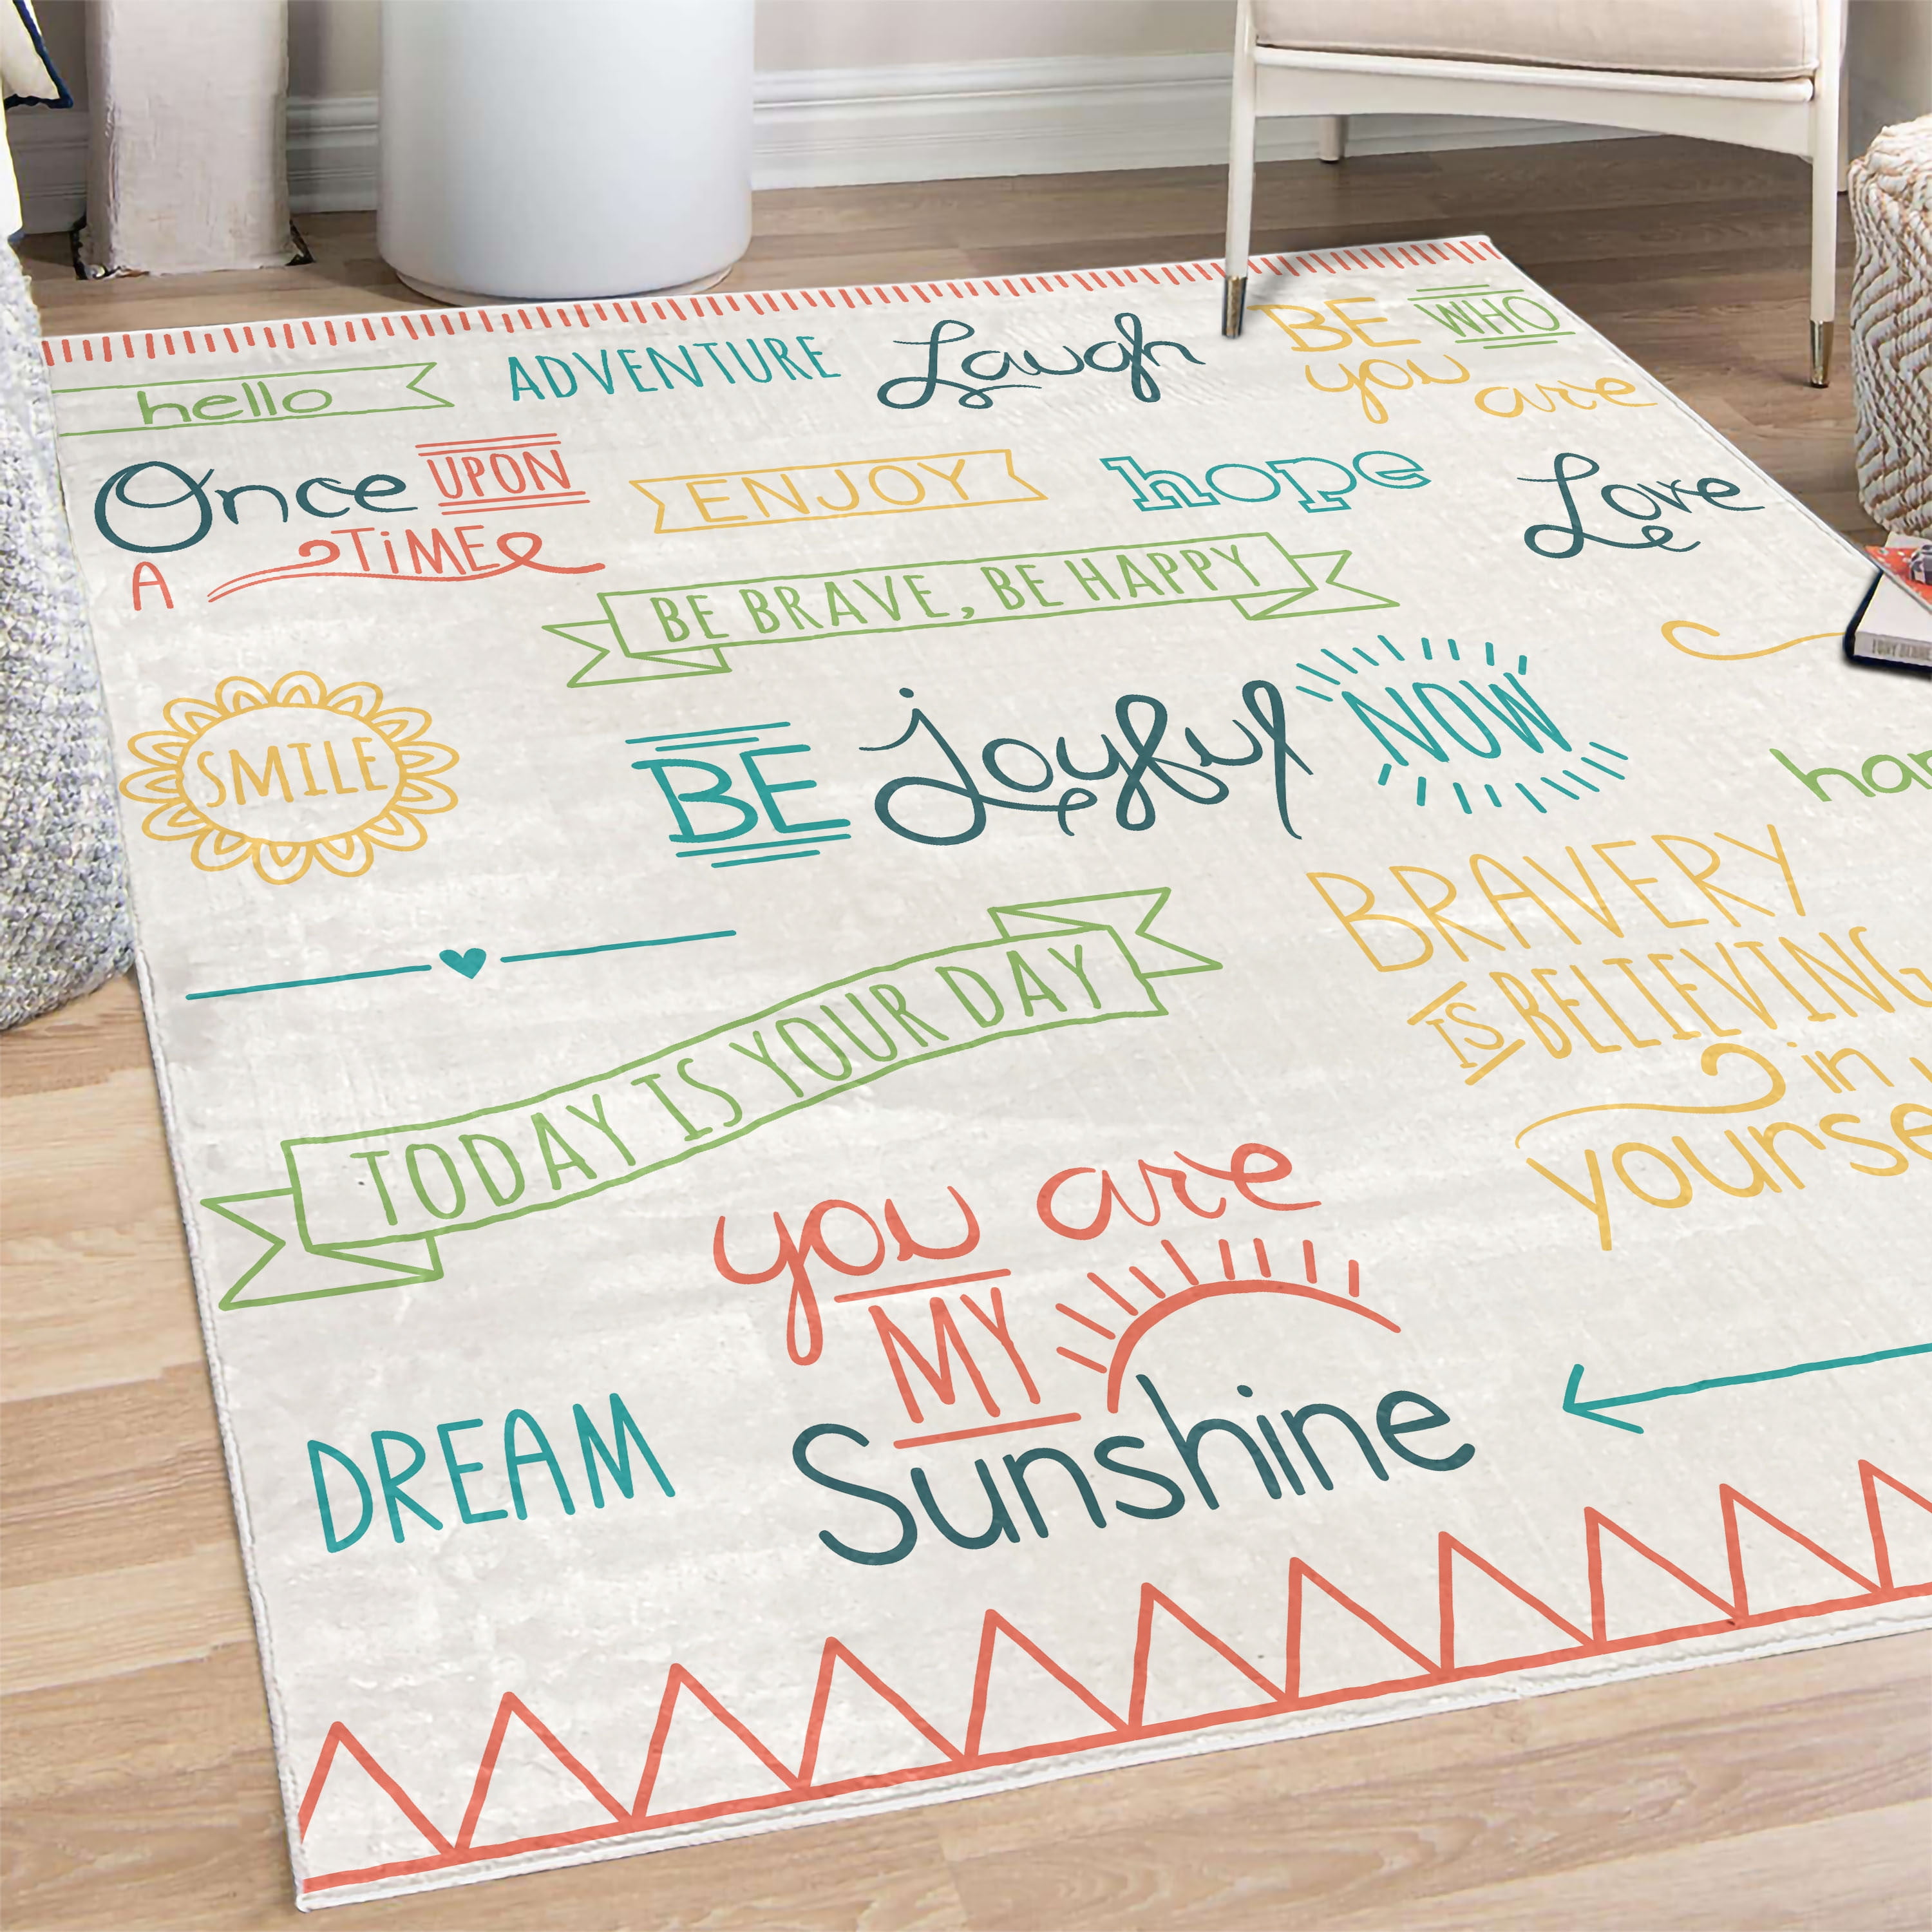 hello
ADVENTURE
Laugh
BE WHO
you are
Once UPON
A TiME
ENJOY
hope
Love
BE BRAVE, BE HAPPY
SMILE
BE joyful NOW
BRAVERY
IS BELIEVING
in
TODAY IS YOUR DAY
you are
MY
Sunshine
DREAM